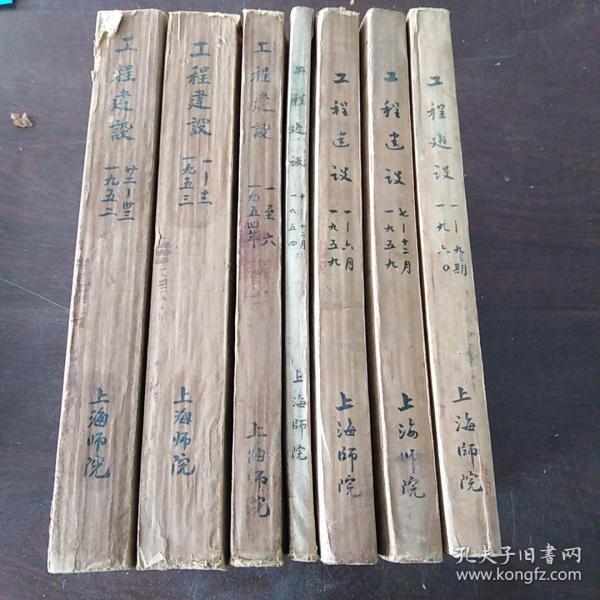 工程建設
廿二-卅三
一九五二
上海师院
工程建設
一-十二
一九五三
上海师院
工程建設
一至六
一九五四年
上海师院
工程建設
十二月
一九五四
上海師院
工程建设
一-六月
一九五九
上海師院
工程建设
七-十二月
一九五九
上海師院
工程建设
一-九期
一九六〇
上海師院
孔夫子旧書网
www.kongfz.com